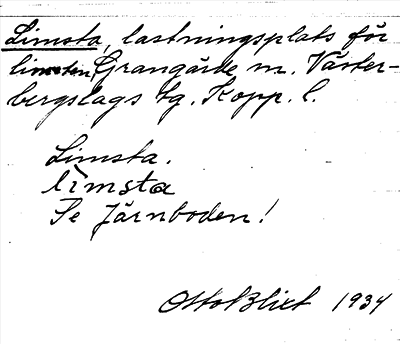 Limsta, lastningsplats för
limsten, Grangärde sn. Väster-
bergslags tg. Kopp. l.
Limsta.
limsta
Se Järnboden!
Otto Blixt 1934